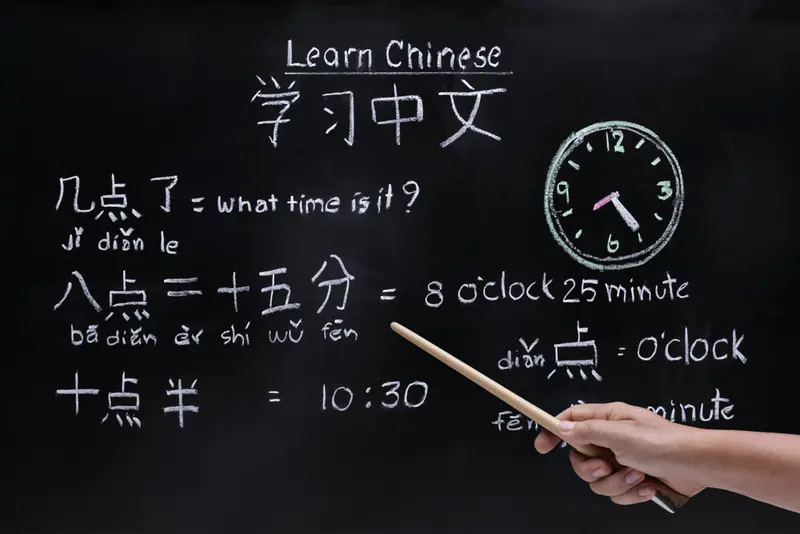 Learn Chinese
学习中文
几点了 = what time is it?
jǐ diǎn le
八点二十五分 = 8 o'clock 25 minute
bā diǎn èr shí wǔ fēn
十点半 = 10:30
12
9 3
6
diǎn 点 = o'clock
fēn minute